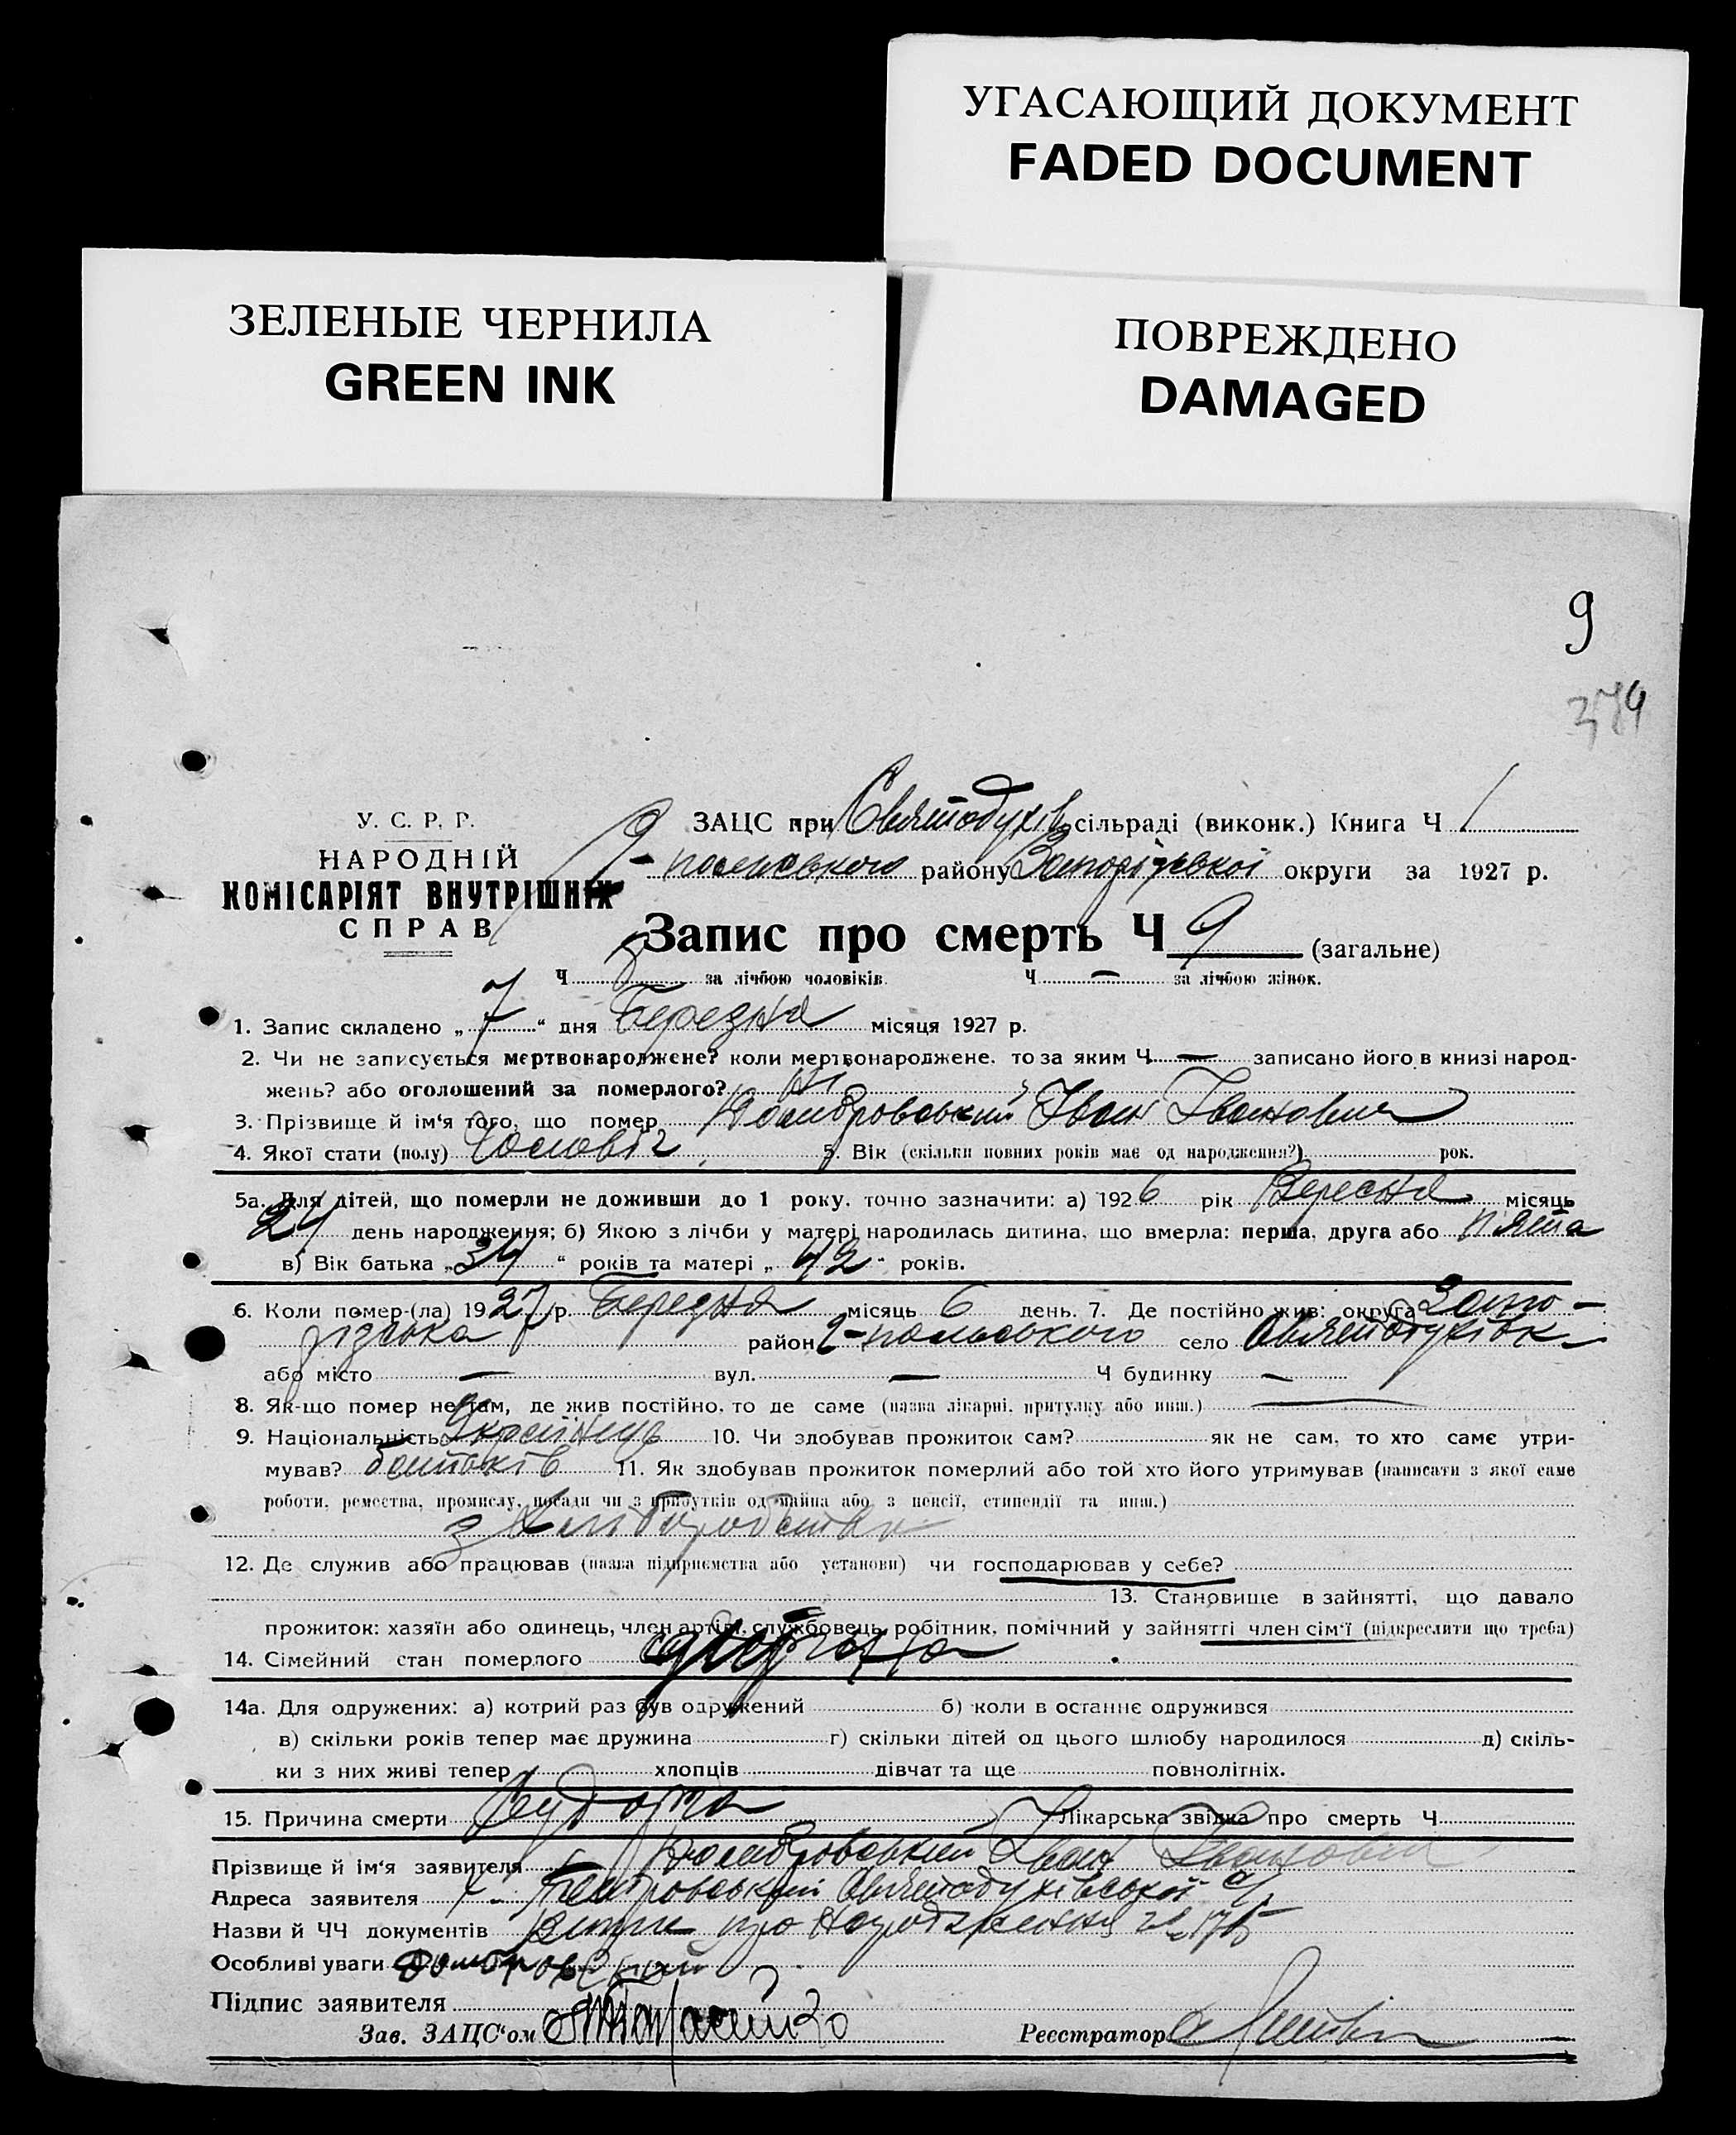 УГАСАЮЩИЙ ДОКУМЕНТ
FADED DOCUMENT
ЗЕЛЕНЫЕ ЧЕРНИЛА
GREEN INK
ПОВРЕЖДЕНО
DAMAGED
9
379
У. С. Р. Р.
НАРОДНІЙ
КОМІСАРІЯТ ВНУТРІШНІХ
СПРАВ
ЗАЦС при Святодухів сільраді (виконк.) Книга Ч 1
9-польського району Запорізької округи за 1927 р.
Запис про смерть Ч 9 (загальне)
Ч 8 за лічбою чоловіків. Ч — за лічбою жінок.
1. Запис складено „ 7 “ дня Березня місяця 1927 р.
2. Чи не записується мертвонароджене? коли мертвонароджене, то за яким Ч — записано його в книзі народ-
жень? або оголошений за померлого? Ні
3. Прізвище й ім‘я того, що помер Домбровський Іван Іванович
4. Якої стати (полу) Чоловіч 5. Вік (скільки повних років має од народження?) рок.
5а. Для дітей, що померли не доживши до 1 року, точно зазначити: а) 1926 рік Вересня місяць
24 день народження; б) Якою з лічби у матері народилась дитина, що вмерла: перша, друга або пята
в) Вік батька „ 34 “ років та матері „ 42 “ років.
6. Коли помер-(ла) 1927 р. Березня місяць 6 день. 7. Де постійно жив: округа Запо-
різська район 9-польського село Святодухівк
або місто — вул. — Ч будинку —
8. Як-що помер не там, де жив постійно, то де саме (назва лікарні, притулку або инш.) —
9. Національність Українець 10. Чи здобував прожиток сам? як не сам, то хто саме утри-
мував? батьків 11. Як здобував прожиток померлий або той хто його утримував (написати з якої саме
роботи, ремества, промислу, посади чи з прибутків од майна або з пенсії, стипендії та инш.)
з хліборобства
12. Де служив або працював (назва підприємства або установи) чи господарював у себе?
13. Становище в зайнятті, що давало
прожиток: хазяїн або одинець, член артілі, службовець, робітник, помічний у зайнятті член сім‘ї (підкреслити що треба)
14. Сімейний стан померлого
14а. Для одружених: а) котрий раз був одружений б) коли в останнє одружився
в) скільки років тепер має дружина г) скільки дітей од цього шлюбу народилося д) скіль-
ки з них живі тепер хлопців дівчат та ще повнолітніх.
15. Причина смерти Лікарська звідка про смерть Ч
Прізвище й ім‘я заявителя Домбровський Іван Іванович
Адреса заявителя Святодухівської с/
Назви й ЧЧ документів про народження
Особливі уваги Домбровский
Підпис заявителя
Зав. ЗАЦС‘ом Реєстратор